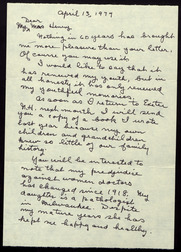 April 13, 1977
Dear
Mrs. Henry,
Nothing in 60 years has brought
me more pleasure than your letter.
Of course you may use it.
I would like to say that it
has renewed my youth, but in
all honesty, it has only renewed
my youthful memories.
As soon as I return to Exeter
N.H. next month I will send
you a copy of a book I wrote
last year because my own
children and grandchildren
knew so little of our family
history.
You will be interested to
note that my prejudice
against women doctors
has changed since 1918. My
daughter is a pathologist
in Milwaukee. Despite
my mature years she has
kept me happy and healthy.